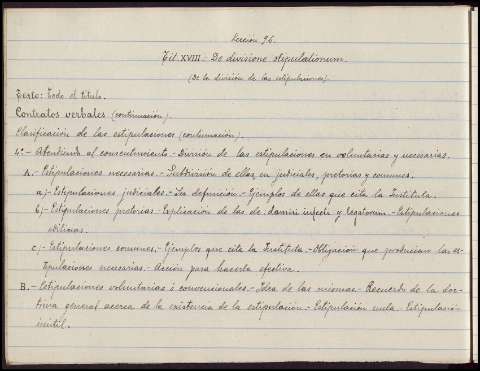 Lección 96.
Tít. XVIII: De divisione stipulationum.
(De la división de las estipulaciones).
Texto: Todo el título.
Contratos verbales (continuación).
Clasificación de las estipulaciones (continuación).
4º.- Atendiendo al consentimiento.- División de las estipulaciones en voluntarias y necesarias.
A.- Estipulaciones necesarias.- Subdivisión de ellas en judiciales, pretorias y comunes.
a).- Estipulaciones judiciales.- Su definición.- Ejemplos de ellas que cita la Instituta.
b).- Estipulaciones pretorias.- Explicación de las de damni infecti y legatorum.- Estipulaciones
edilicias.
c).- Estipulaciones comunes.- Ejemplos que cita la Instituta.- Obligación que producían las es-
tipulaciones necesarias.- Acción para hacerla efectiva.
B.- Estipulaciones voluntarias ó convencionales.- Idea de las mismas.- Recuerdo de la doc-
trina general acerca de la existencia de la estipulación.- Estipulación nula.- Estipulación
inútil.